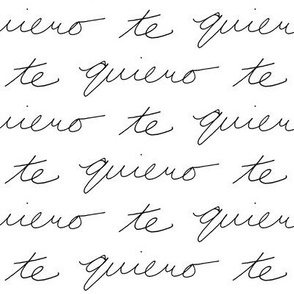 uiero te quier
te quiero te
uiero te quier
te quiero te
uiero te quier
te quiero te